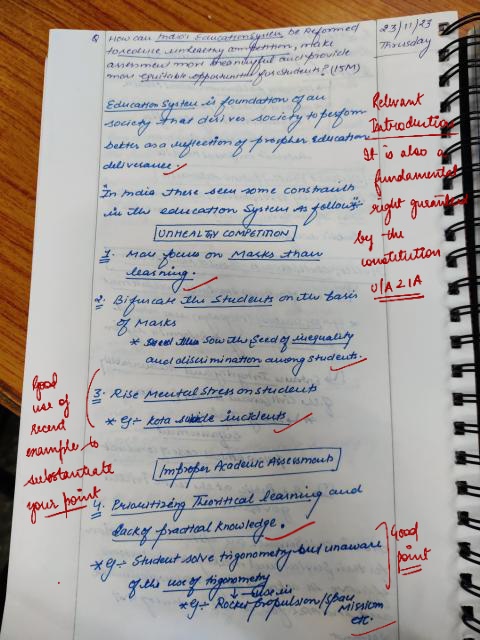 Q How can India's Education System be Reformed
to reduce unhealthy competition, make
assessment more meaningful and provide
more equitable opportunities for students? (15M)
23/11/23
Thrusday
Education System is foundation of an
society that derives society to perform
better as a reflection of propher education
deliverance.
Relevant
Introduction
It is also a
fundamental
right guaranteed
by the
constitution
U/A 21A
In India there seen some constraints
in the education System as follow:-
UNHEALTHY COMPETITION
1. More focus on Marks than
learning.
2. Bifurcate the Students on the basis
of Marks
* Sow the Seed of inequality
and discrimination among students.
3. Rise Mental Stress on students
* Eg:- Kota suicide incidents
Good
use of
recent
example to
substantiate
your point
Improper Academic Assessment
4. Prioritizing Theoritical learning and
lack of practical knowledge.
* Eg:- Student solve trigonometry but unaware
of the use of trigonometry
→ use in
* Eg:- Rocket propulsion/Space
Mission
etc.
Good
point